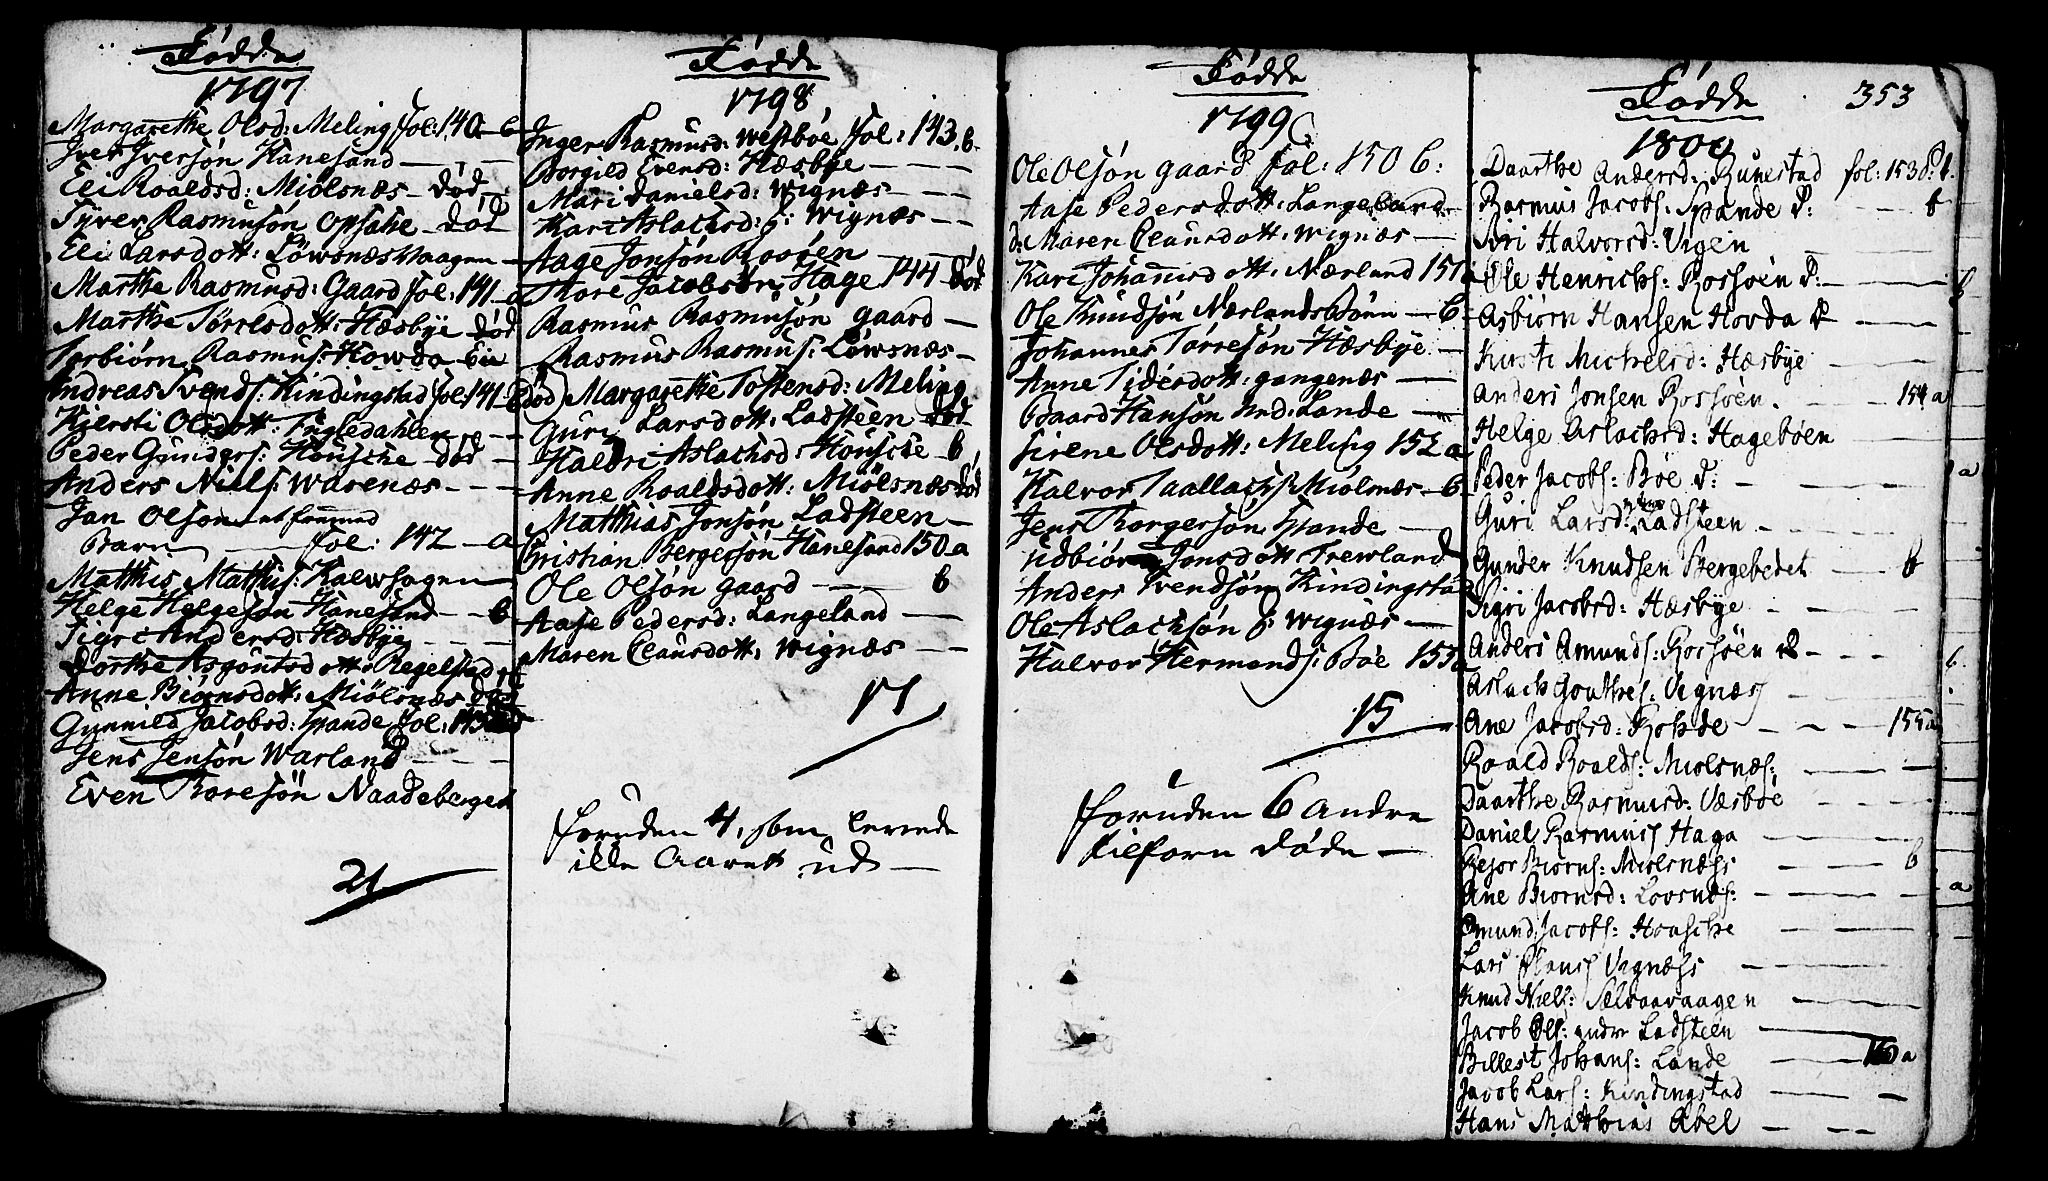 Fødde
1797
Margarethe Olsd: Meling fol: 140 - b
Iver Iversøn Hanesand
Eli Roaldsd: Miølsnæs - død
Syver Rasmusøn Opsahe - død
Eli Larsdott: Løwsnæswaagen
Marthe Rasmusd: Gaard fol: 141 - a
Marthe Tørrlsdott: Hæsbye død
Torbiørn Rasmus: Howda
Andreas Svends: Kindingstad fol: 141 - b død
Kiersti Olsdott: Engledahlen
Peder Gunders: Housche død
Anders Niels: Warenæs
Jan Olson et fremmed
Barn fol: 142 - a
Mathis Mathis: Halwhagen
Helge Helgesøn Hanesand - b
Sigri Andersd: Hæsbye
Dorthe Asgoutsdott: Regelstad
Anne Biørnsdott: Miølsnæs død
Gunnild Jacobsd: Spande fol: 143
Jens Jensøn Warland
Even Toresøn Naadeberget
21
Fødde
1798
Inger Rasmusd: Westbøe fol: 143. b.
Borgild Evensd: Hæsbye
Mari Danielsd: Wignæs
Kari Aslachsd: i: Wignæs
Aage Jonsøn Rosøen
Tore Jacobsøn Hage 144 død
Rasmus Rasmusøn gaard
Rasmus Rasmus: Løwsnæs
Margarethe Tostensd: Meling
Guri Larsdott: Ladsteen død
Haldri Aslachsd: Housche b
Anne Roaldsdott: Miølsnæs død
Matthias Jonsøn Ladsteen
Christian Bergersøn Hanesand 150 a
Ole Olsøn gaard b
Aase Pedersd: Langeland
Maren Clausdott: Wignæs
17
foruden 4, som levede
ikke Aaret ud
Fødde
1799
Ole Olsøn gaard fol: 150 b:
Aase Pedersdott: Langeland
d: Maren Clausdott: Wignæs
Kari Johannisdott: Nærland 151
Ole Knudsøn Nærlandsbøen - b
Johannes Tørresøn Hæsbye
Anne Tidersdott: gangenæs
Baard Hansøn Nrd: Lande
Sirene Olsdott: Meling 152 a
Halvor Taallachs: Miølsnæs - b
Jens Thorgersøn Spande
Udbiør Jonsdott: Trewland
Anders Svendsøn Kindingstad
Ole Aslachsøn i: Wignæs
Halvor Hermands: Bøe 153
15
foruden 6 andre
tilforn døde
Fødde 353
1800
Daarthe Andersd: Runestad fol: 153
Rasmus Jacobs: Spande d: b
Siri Halvorsd: Vigen
Ole Henrichs: Rossøen d:
Asbiørn Hansen Hovda d
Kirsti Michelsd: Hæsbye
Anders Jonsen Rossøen. 154 a
Helge Aslachsd: Hagebøen
Peder Jacobs: Bøe d:
Guri Larsd: Ladsteen
Gunder Knudsen Bergebedet b
Sigri Jacobsd: Hæsbye
Anders Amunds: Rossøen d
Aslach Gouthes: Vignæs
Ane Jacobsd: Hohde 155 a
Roald Roalds: Miolsnæs:
Daarthe Rasmusd: Væsbøe
Daniel Rasmus Haga
Rejor Biorns: Miolsnæss b
Ane Biornsd: Lovsnæs:
Omund Jacobs: Housche
Lars Clauss Vignæss
Knud Niels: Selvaavaagen
Jacob Ols: yndre Ladsteen
Billest Johans: Lande a
Jacob Lars: Kindingstad
Hans Mathias Abel